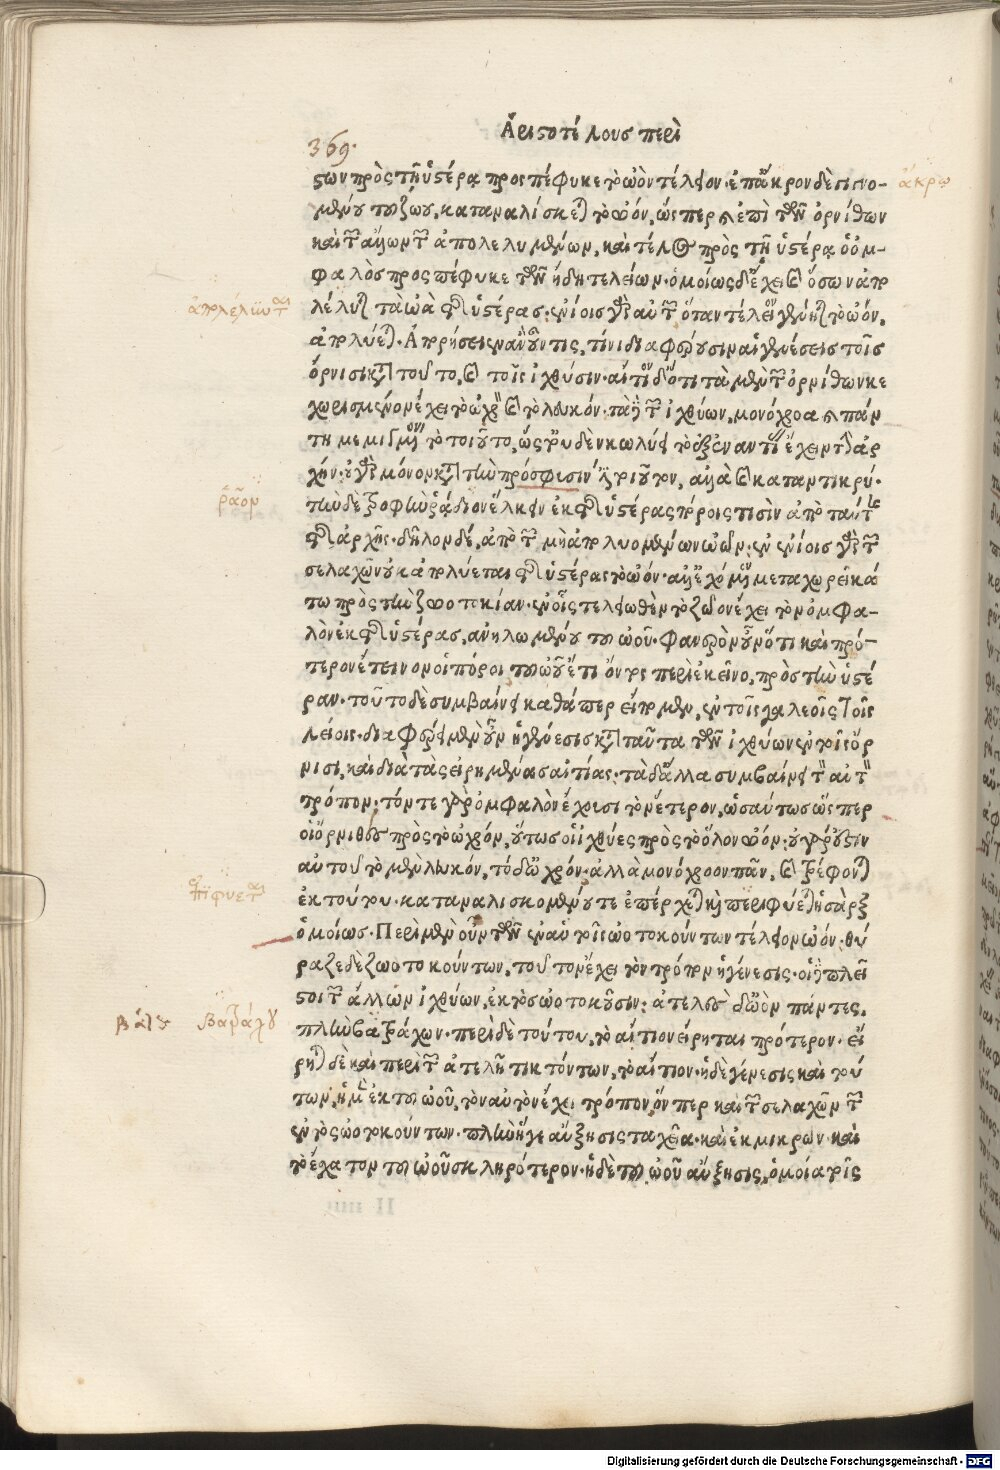 Ἀριστοτέλους περὶ
369.
στων πρὸς τῇ ὑστέρᾳ προσπέφυκε τὸ ὠὸν τέλειον. ἐπ' ἄκρον δὲ γινο-
μένου τοῦ ζώου, καταναλίσκεται τὸ ὠόν, ὥσπερ κ ἐπὶ τῶν ὀρνίθων
καὶ τῶν ἄλλων τῶν ἀπολελυμένων, καὶ τέλος πρὸς τῇ ὑστέρᾳ ὁ ὀμ-
φαλὸς προσπέφυκε τῶν ἤδη τελείων. ὁμοίως δ' ἔχει καὶ ὅσων ἀπο
λέλυται τὰ ὠὰ τῆς ὑστέρας. ἐνίοις γὰρ αὐτῶν ὅταν τέλειον γένηται τὸ ὠόν,
ἀπολύεται. Ἀπορήσειεν ἂν οὖν τις, τίνι διαφέρουσιν αἱ γενέσεις τοῖς
ὄρνισι κατὰ τοῦτο, καὶ τοῖς ἰχθύσιν. αἴτιον δ' ὅτι τὰ μὲν τῶν ὀρνίθων κε
χωρισμένον ἔχει τὸ ὠχρὸν καὶ τὸ λευκόν. τὰ δὲ τῶν ἰχθύων, μονόχροα κ πάν
τῃ μεμιγμένον τὸ τοιοῦτο, ὥστ' οὐδὲν κωλύει τὸ ἐξεναντίας ἔχειν τὴν ἀρ
χήν. οὐ γὰρ μόνον κατὰ τὴν πρόσφυσιν ἐστὶ τοιοῦτον, ἀλλὰ καὶ καταντικρύ.
τὴν δὲ τροφὴν ῥᾴδιον ἕλκειν ἐκ τῆς ὑστέρας πόροις τισὶν ἀπὸ ταύτης
τῆς ἀρχῆς. δῆλον δέ, ἀπὸ τῶν μὴ ἀπολυομένων ὠῶν. ἐν ἐνίοις γὰρ τῶν
σελαχῶν οὐκ ἀπολύεται τῆς ὑστέρας τὸ ὠόν. ἀλλ' ἐχόμενον μεταχωρεῖ κά
τω πρὸς τὴν ζωοτοκίαν. ἐν οἷς τελειωθὲν τὸ ζῶον ἔχει τὸν ὀμφα-
λὸν ἐκ τῆς ὑστέρας, ἀνηλωμένου τοῦ ὠοῦ. φανερὸν οὖν ὅτι καὶ πρό-
τερον ἔτεινον οἱ πόροι τοῦ ὠοῦ ἔτι ὄντος περὶ ἐκεῖνο, πρὸς τὴν ὑστέ
ραν. τοῦτο δὲ συμβαίνει καθάπερ εἴπομεν, ἐν τοῖς γαλεοῖς τοῖς
λείοις. διαφέρει μὲν οὖν ἡ γένεσις κατὰ ταῦτα τῶν ἰχθύων ἐν τοῖς ὄρ
νισι, καὶ διὰ τὰς εἰρημένας αἰτίας. τὰ δ' ἄλλα συμβαίνει τὸν αὐτὸν
τρόπον. τόν τε γὰρ ὀμφαλὸν ἔχουσι τὸν ἕτερον, ὡσαύτως ὥσπερ
οἱ ὄρνιθες πρὸς τὸ ὠχρόν, οὕτως οἱ ἰχθύες πρὸς τὸ ὅλον ὠόν. οὐ γάρ ἐστιν
αὐτοῦ τὸ μὲν λευκόν, τὸ δ' ὠχρόν. ἀλλὰ μονόχροον πᾶν, καὶ τρέφονται
ἐκ τούτου. καταναλισκομένου τε ἐπέρχεται κὴ περιφύεται ἡ σὰρξ
ὁμοίως. Περὶ μὲν οὖν τῶν ἐν αὐτοῖς ὠοτοκούντων τέλειον ὠόν. θύ
ραζε δὲ ζωοτοκούντων, τοῦτον ἔχει τὸν τρόπον ἡ γένεσις. οἱ δὲ πλεῖ
στοι τῶν ἄλλων ἰχθύων, ἐκτὸς ὠοτοκοῦσιν. ἀτελὲς δ' ὠὸν πάντες.
πλὴν βατράχων. περὶ δὲ τούτου, τὸ αἴτιον εἴρηται πρότερον. εἴ
ρηται δὲ καὶ περὶ τῶν ἀτελῆ τικτόντων, τὸ αἴτιον. ἡ δὲ γένεσις καὶ τού
των, ἡ μὲν ἐκ τοῦ ὠοῦ, τὸν αὐτὸν ἔχει τρόπον ὅνπερ καὶ τῶν σελαχῶν τῶν
ἐντὸς ὠοτοκούντων. πλὴν ἥγε αὔξησις ταχεῖα. καὶ ἐκ μικρῶν. καὶ
τὸ ἔχατον τοῦ ὠοῦ σκληρότερον. ἡ δὲ τοῦ ὠοῦ αὔξησις, ὁμοία τοῖς
ἄκρῳ
ῥᾷον
βατράχου
Digitalisierung gefördert durch die Deutsche Forschungsgemeinschaft - DFG